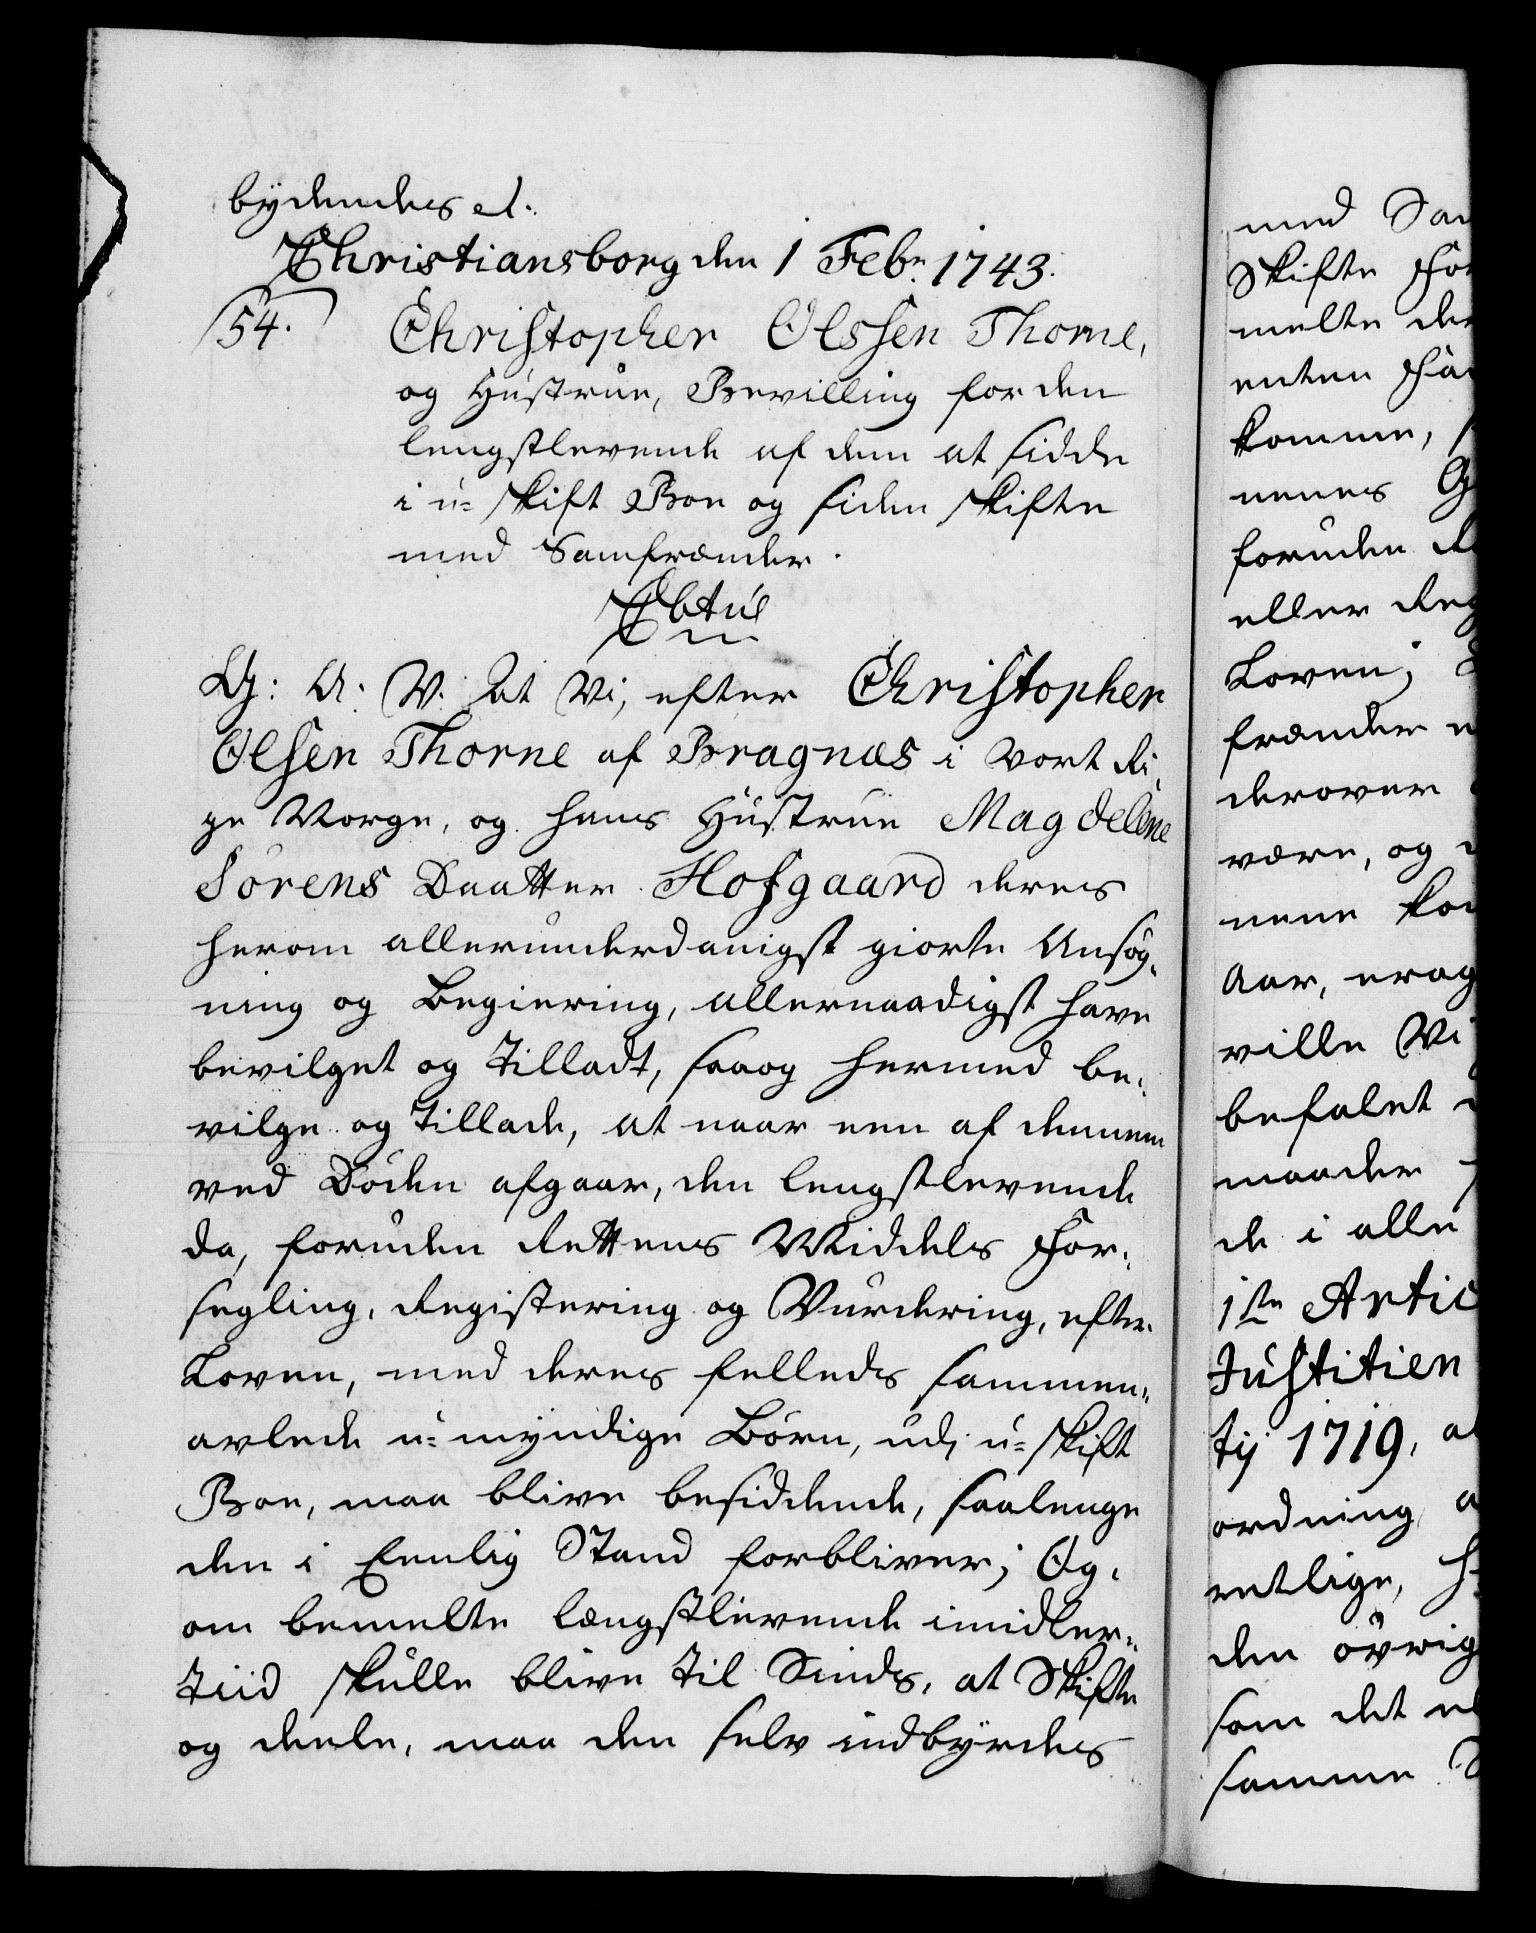 bydendes et.
Christiansborg den 1 Febr. 1743.
54.
Christopher Olssen Thorne,
og Hustrue, Bevilling for den
lengstlevende af dem at sidde
i u-skift Boe og siden skifte
med Samfrænder.
G: A: V. At Vi, efter Christopher
Olsen Thorne af Bragnæs i vort Ri,
ge Norge, og hans Hustrue Magdelene
Sørens Daatter Hofgaard deres
herom allerunderdanigst giorte Ansøg,
ning og Begiering, allernaadigst have
bevilget og Tilladt, saaog hermed be,
vilge og Tillade, at naar een af dennem
ved Døden afgaar, den lengstlevende
da, foruden Rettens Middels For,
segling, Registering og Vurdering, efter
Loven, med deres felleds sammen,
avlede u-myndige Børn, udj u-skift
Boe, maa blive besiddende, saalenge
den i Eenlig Stand forbliver; Og,
om bemelte længstlevende imidler,
Tiid skulle blive til Sinds, at Skifte
og deele, maa den selv indbyrdes
med Sam
Skifte for
melte der
enten
komme,
nenes
foruden
eller
Loven;
frænder
derover
være, og
nene
Aar,
ville Vi
befalet
maader
de i alle
1ste Artic
Justitien
tij 1719,
ordning
retlige,
den øvrig
som det
samme